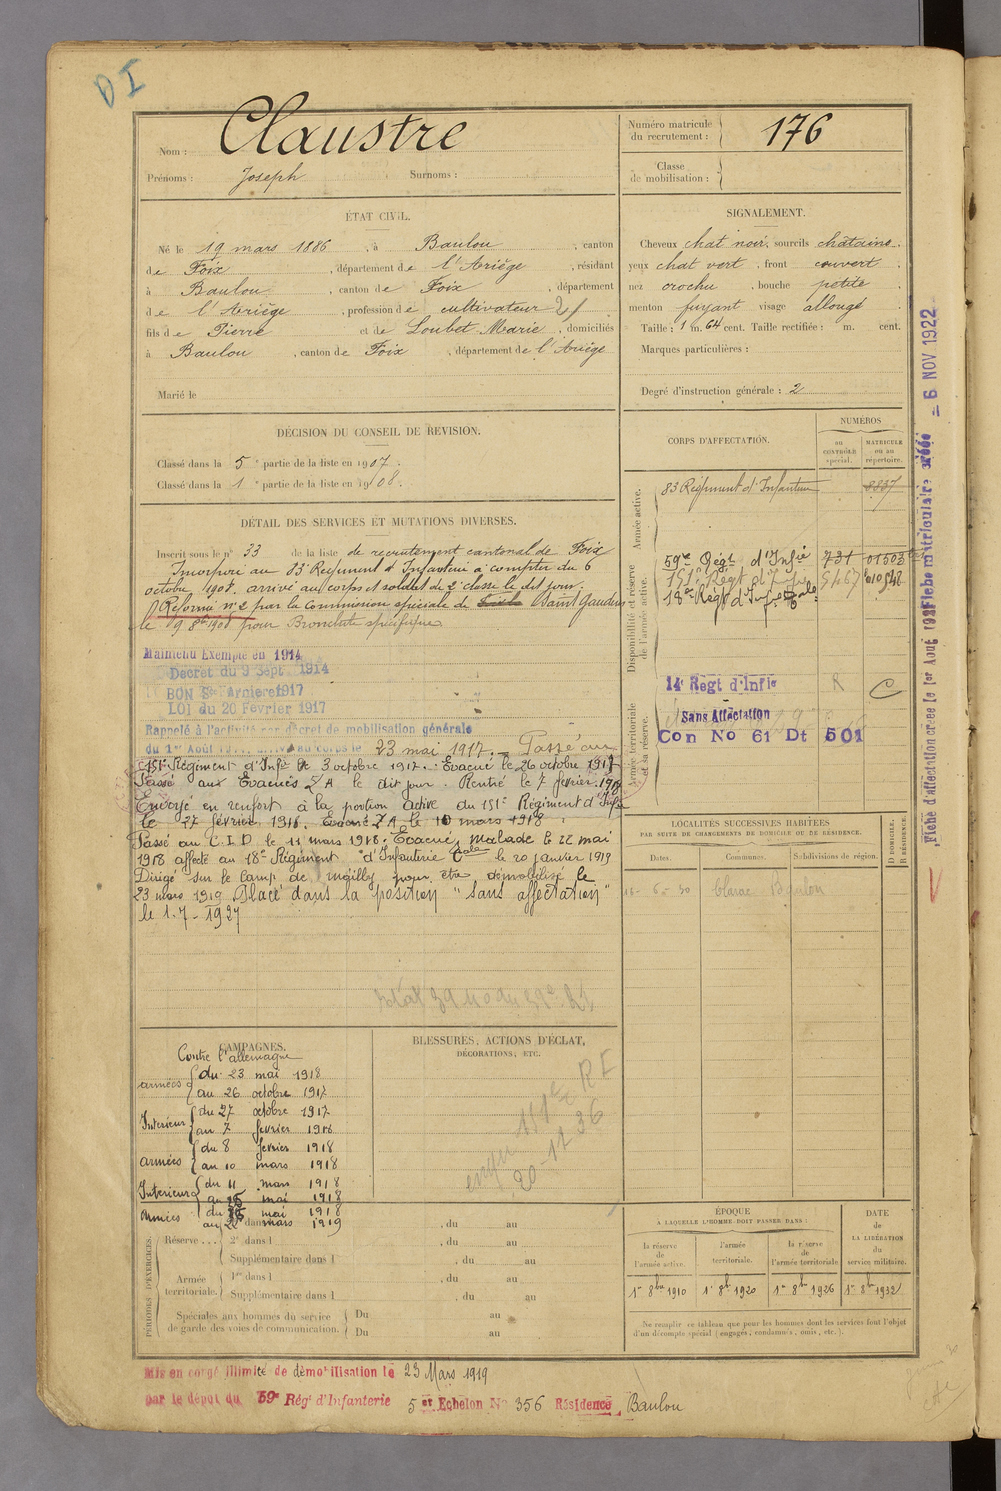 D I
Nom : Claustre
Prénoms : Joseph Surnoms :
Numéro matricule
du recrutement : 176
Classe
de mobilisation :
ÉTAT CIVIL.
Né le 19 mars 1886, à Baulou, canton
de Foix, département de l'Ariège, résidant
à Baulou, canton de Foix, département
de l'Ariège, profession de cultivateur 21
fils de Pierre et de Loubet Marie, domiciliés
à Baulou, canton de Foix, département de l'Ariège
Marié le
SIGNALEMENT.
Cheveux chat noir, sourcils châtains.
yeux chat vert, front couvert
nez crochu, bouche petite
menton fuyant visage allongé
Taille : 1 m. 64 cent. Taille rectifiée : m. cent.
Marques particulières :
Degré d'instruction générale : 2
DÉCISION DU CONSEIL DE REVISION.
Classé dans la 5e partie de la liste en 1907.
Classé dans la 1e partie de la liste en 1908.
DÉTAIL DES SERVICES ET MUTATIONS DIVERSES.
Inscrit sous le n° 33 de la liste de recrutement cantonal de Foix
Incorporé au 83e Régiment d'Infanterie à compter du 6
octobre 1908, arrivé au corps et soldat de 2e classe le dit jour.
Réformé n° 2 par la Commission spéciale de Saint Gaudens
le 19 8bre 1908 pour Bronchite spécifique
Maintenu Exempté en 1914
Décret du 9 Sept 1914
BON Sce Armé 1917
LOI du 20 Février 1917
Rappelé à l'activité par décret de mobilisation générale
du 1er Août 1914, arrivé au corps le 23 mai 1917. Passé au
151e Régiment d'Infie le 3 octobre 1917. Evacué le 26 octobre 1917
Passé aux Evacués Z A le dit jour. Rentré le 7 février 1918
Envoyé en renfort à la portion active du 151e Régiment d'Infie
le 27 février 1918. Evacué Z A le 10 mars 1918
Passé au C.I.D le 11 mars 1918. Evacué, malade le 22 mai
1918 affecté au 18e Régiment d'Infanterie Cale le 20 janvier 1919
Dirigé sur le camp de Mailly pour être démobilisé le
23 mars 1919 Placé dans la position "sans affectation"
le 1-7-1927
CORPS D'AFFECTATION.
NUMÉROS
au
CONTRÔLE
spécial.
MATRICULE
ou au
répertoire.
Armée active.
83 Régiment d'Infanterie 8337
Disponibilité et réserve
de l'armée active.
59e Régt d'Infie 731 01503
151e Régt d'Infie 5467
18e Régt d'Infie Cale
Armée territoriale
et sa réserve.
14e Régt d'Infie R C
Sans Affectation
Con No 61 Dt 501
Fiche d'affectation créée le 1er Août 1921 Fiche matriculaire créée – 6 NOV 1922
LOCALITÉS SUCCESSIVES HABITÉES
PAR SUITE DE CHANGEMENTS DE DOMICILE OU DE RÉSIDENCE.
Dates. Communes. Subdivisions de région. D DOMICILE. R RÉSIDENCE.
6-30 Baulou
CAMPAGNES.
Contre l'allemagne
armées du 23 mai 1918
au 26 octobre 1917
Intérieur du 27 octobre 1917
au 7 février 1918
armées du 8 février 1918
au 10 mars 1918
Intérieur du 11 mars 1918
au 25 mai 1918
Armées du mai 1918
au mars 1919
BLESSURES, ACTIONS D'ÉCLAT,
DÉCORATIONS, ETC.
R I
20-12 36
PÉRIODES D'EXERCICES.
Réserve ... dans l , du au
2e dans l , du au
Supplémentaire dans l , du au
Armée
territoriale. 1re dans l , du au
Supplémentaire dans l , du au
Spéciales aux hommes du service
de garde des voies de communication. Du au
Du au
ÉPOQUE
À LAQUELLE L'HOMME DOIT PASSER DANS :
la réserve
de
l'armée active.
l'armée
territoriale.
la réserve
de
l'armée territoriale
DATE
de
LA LIBÉRATION
du
service militaire.
1er 8bre 1910 1er 8bre 1920 1er 8bre 1926 1er 8bre 1932
Ne remplir ce tableau que pour les hommes dont les services font l'objet
d'un décompte spécial (engagés, condamnés, omis, etc.).
Mis en congé illimité de démobilisation le 23 Mars 1919
par le dépôt du 59e Régt d'Infanterie 5e Echelon No 356 Résidence Baulou